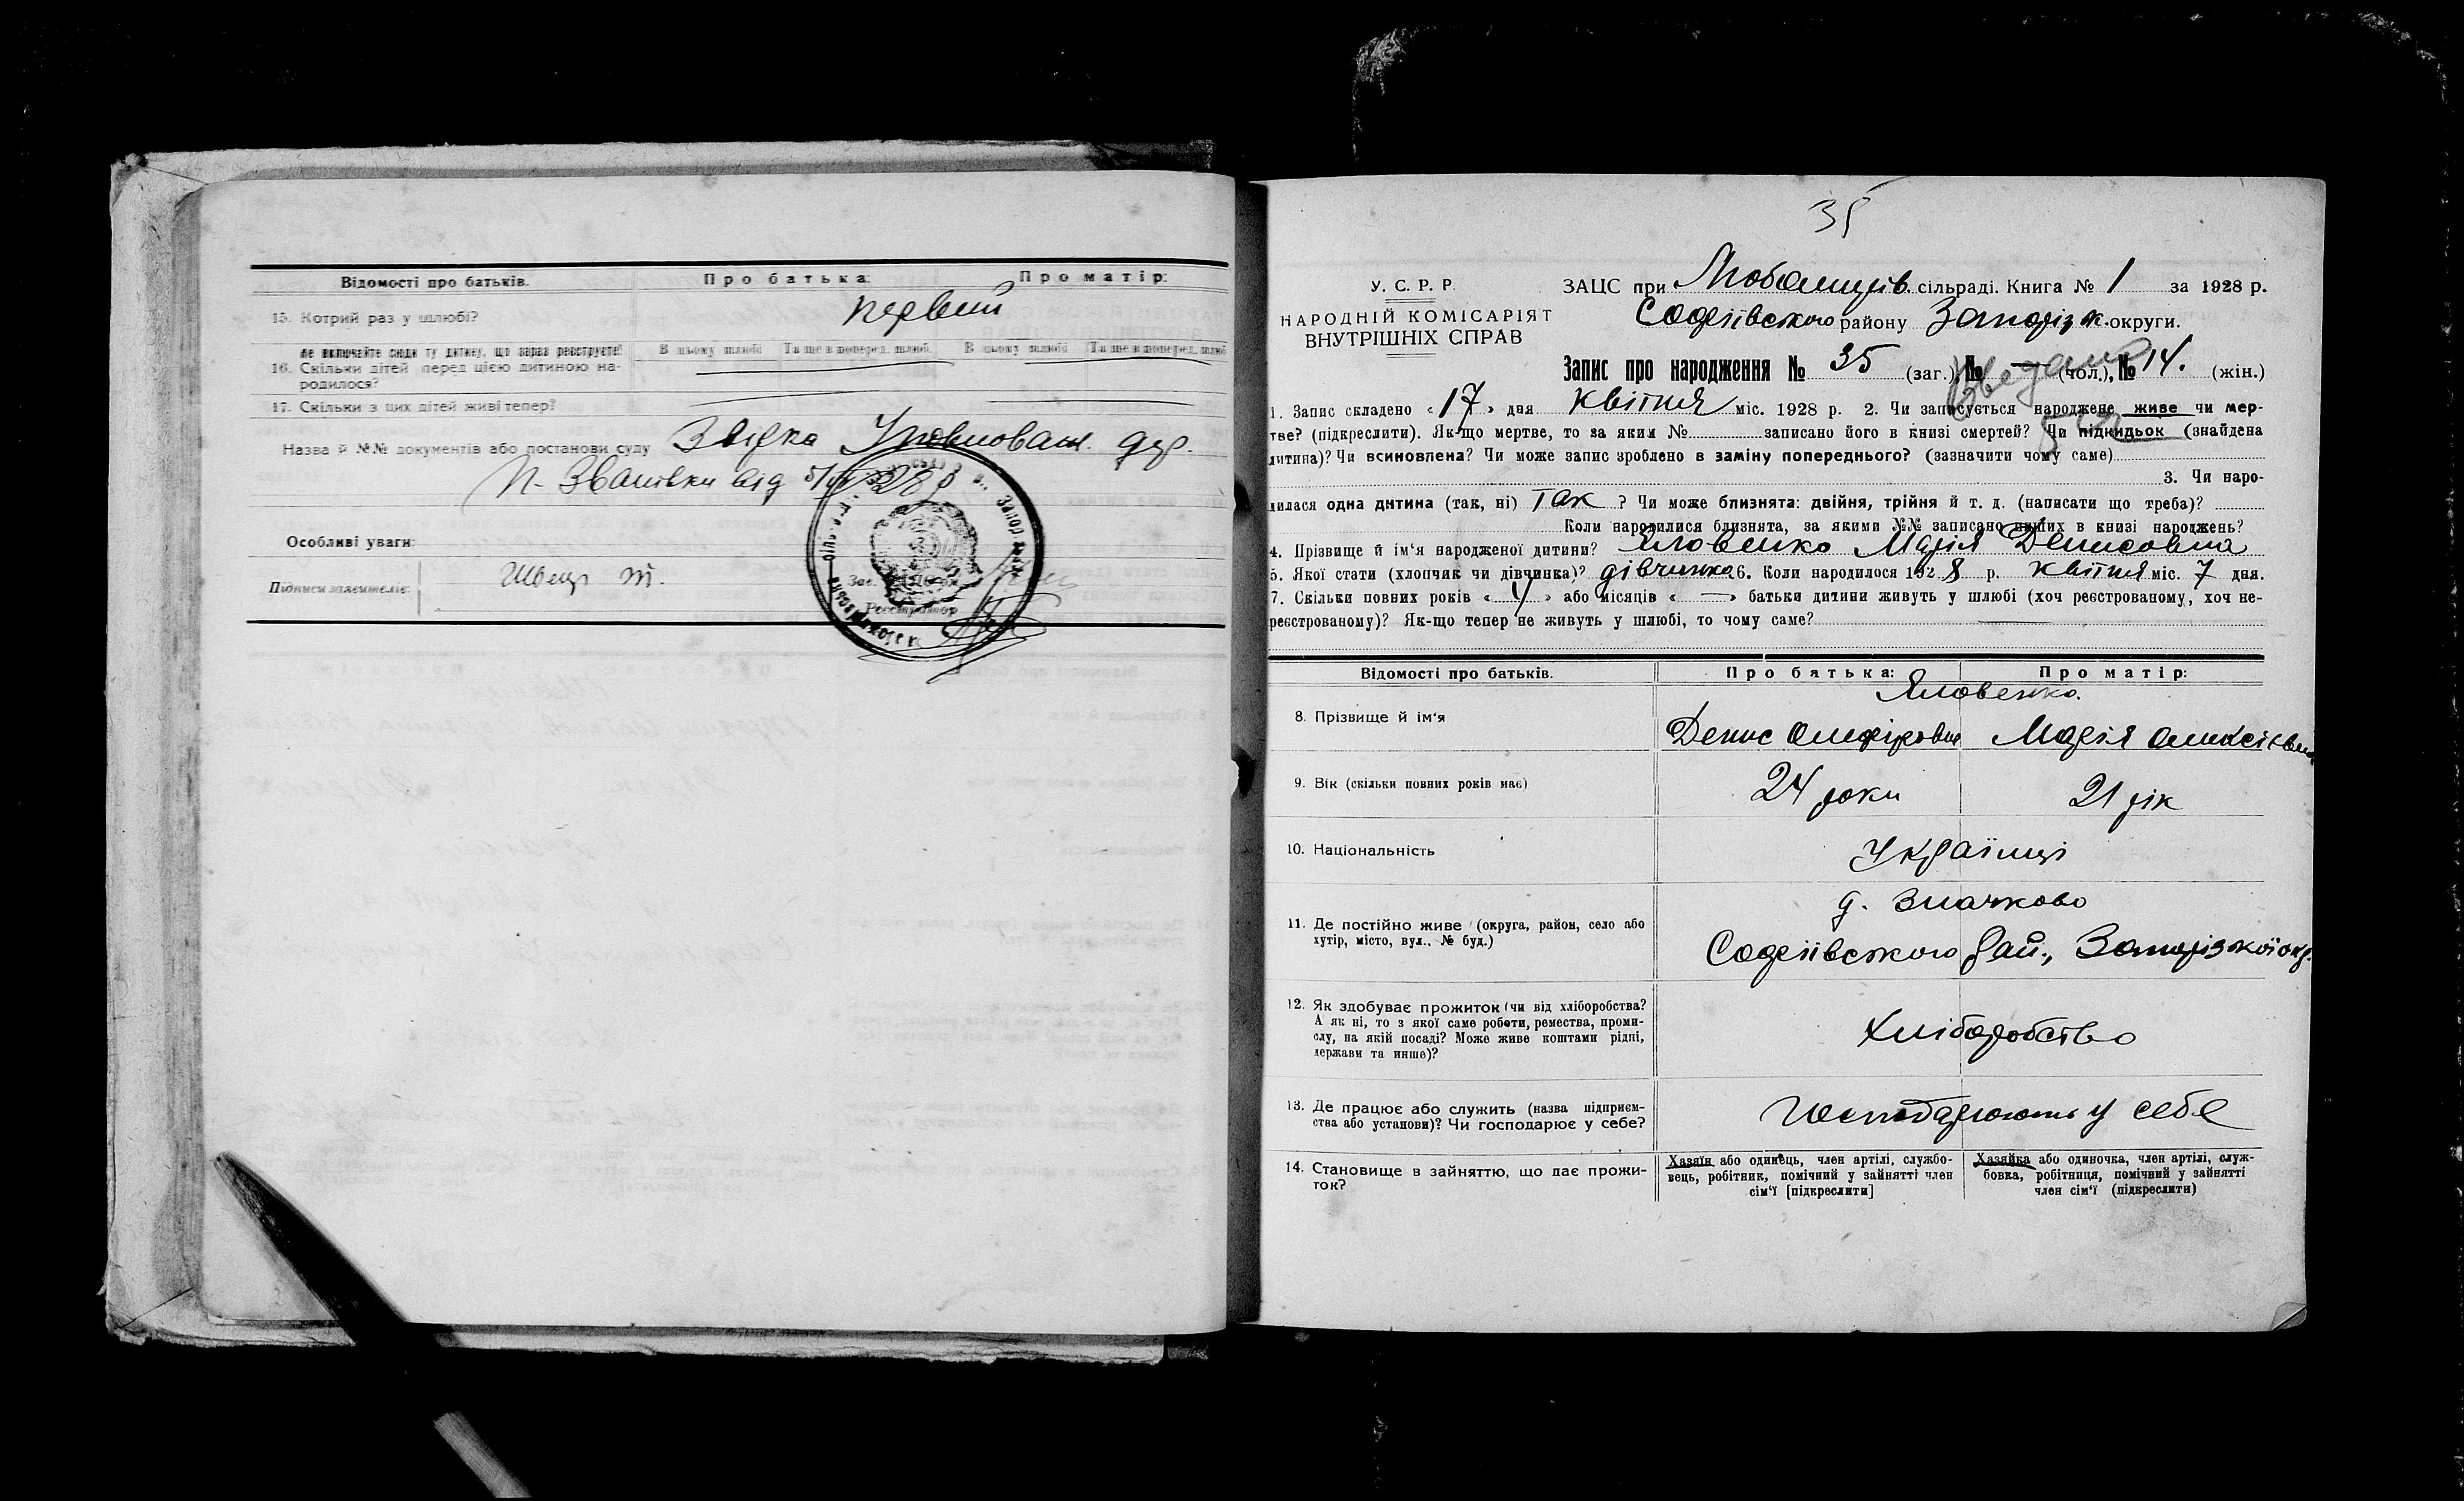 Відомості про батьків. Про батька: Про матір:
15. Котрий раз у шлюбі? первий
не включайте сюди ту дитину, що зараз реєструєте!
В цьому шлюбі Та ще в поперед. шлюб. В цьому шлюбі Та ще в поперед. шлюб
16. Скільки дітей перед цією дитиною на-
родилося?
17. Скільки з цих дітей живі тепер?
Назва й №№ документів або постанови суду Звідка Уповноваж. дер.
від
Особливі уваги:
Підписи заявителів: Швець
Реєстратор
35
У. С. Р. Р.
НАРОДНІЙ КОМІСАРІЯТ
ВНУТРІШНІХ СПРАВ
ЗАЦС при сільраді. Книга № 1 за 1928 р.
Софіївського району Запоріжж. округи.
Запис про народження № 35 (заг.), № — (чол.), № 14. (жін.)
1. Запис складено «17» дня квітня міс. 1928 р. 2. Чи записується народжене живе чи мер-
тве? (підкреслити). Як-що мертве, то за яким № записано його в книзі смертей? Чи підкидьок (знайдена
дитина)? Чи всиновлена? Чи може запис зроблено в заміну попереднього? (зазначити чому саме)
3. Чи наро-
дилася одна дитина (так, ні) так ? Чи може близнята: двійня, трійня й т. д. (написати що треба)?
Коли народилися близнята, за якими №№ записано інших в книзі народжень?
4. Прізвище й ім'я народженої дитини? Яловенко Марія Денисовна
5. Якої стати (хлопчик чи дівчинка)? дівчинка 6. Коли народилося 1928 р. квітня міс. 7 дня.
7. Скільки повних років « » або місяців « — » батьки дитини живуть у шлюбі (хоч реєстрованому, хоч не-
реєстрованому)? Як-що тепер не живуть у шлюбі, то чому саме?
Відомості про батьків. Про батька: Про матір:
Яловенко.
8. Прізвище й ім'я Денис Марія
9. Вік (скільки повних років має) 24 роки 21 рік
10. Національність Українці
д. Значково
11. Де постійно живе (округа, район, село або
хутір, місто, вул., № буд.)
Софіївського рай., Запорізжкої окр.
12. Як здобуває прожиток (чи від хліборобства?
А як ні, то з якої саме роботи, ремества, проми-
слу, на якій посаді? Може живе коштами рідні,
держави та инше)?
Хліборобство
13. Де працює або служить (назва підприєм-
ства або установи)? Чи господарює у себе?
Господарюють у себе
14. Становище в зайняттю, що дає прожи-
ток?
Хазяїн або одинець, член артілі, службо-
вець, робітник, помічний у зайнятті член
сім'ї [підкреслити]
Хазяйка або одиночка, член артілі, служ-
бовка, робітниця, помічний у зайнятті
член сім'ї (підкреслити)